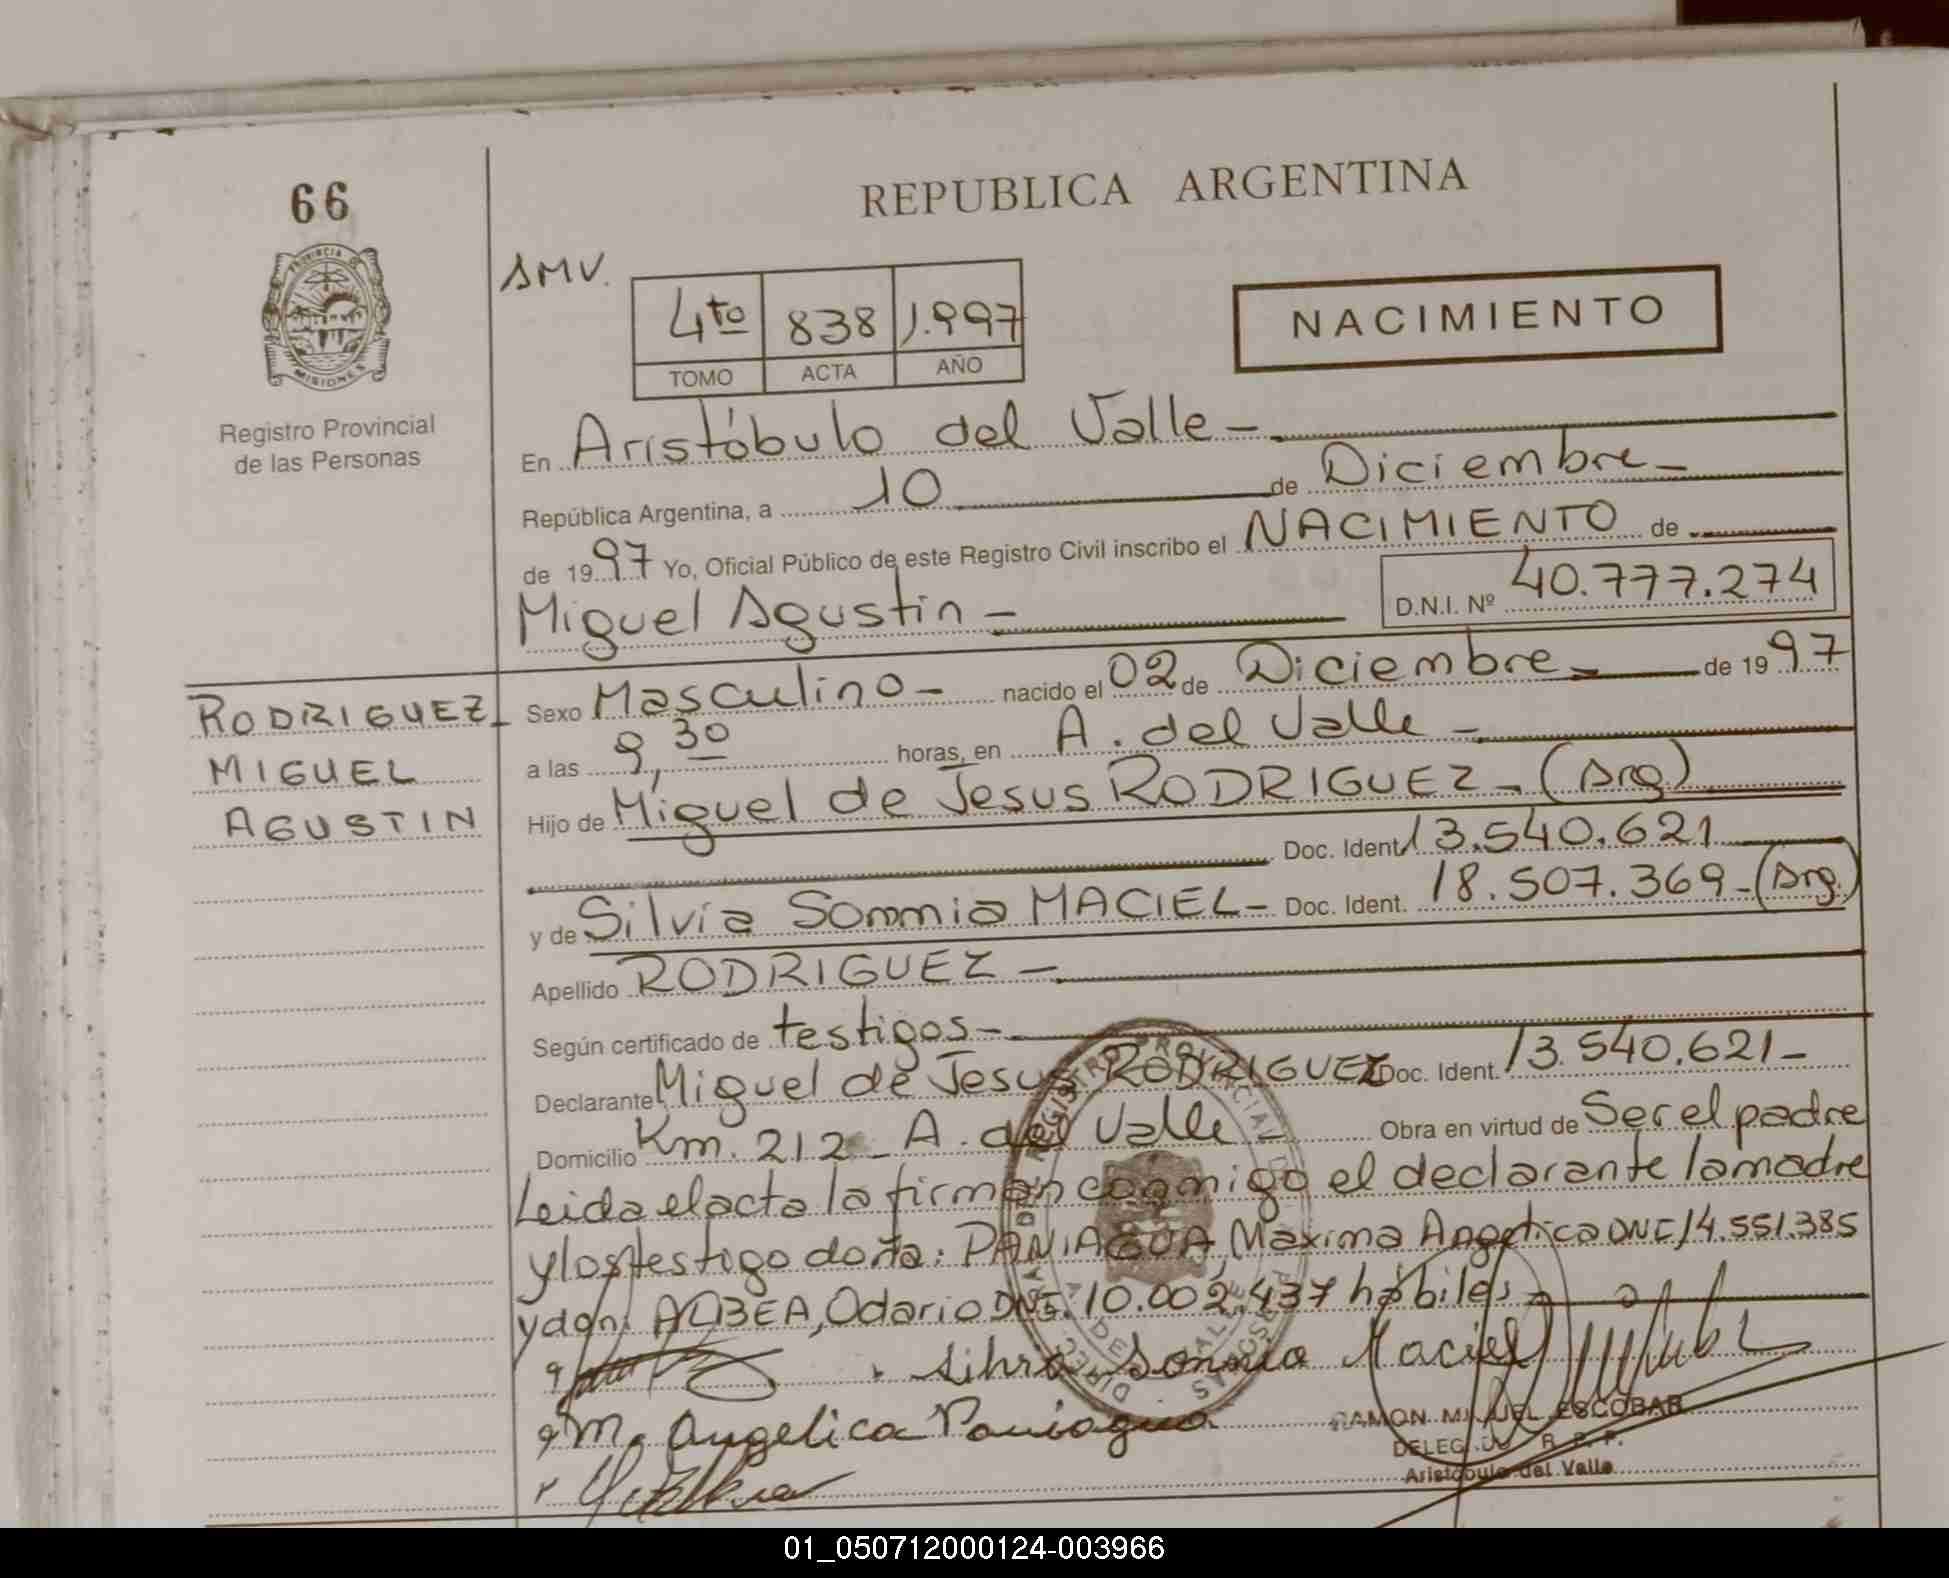 66
REPUBLICA ARGENTINA
PROVINCIA DE MISIONES
Registro Provincial
de las Personas
SMV.
4to 838 1.997
TOMO ACTA AÑO
NACIMIENTO
En Aristóbulo del Valle -
República Argentina, a 10 de Diciembre -
de 1997 Yo, Oficial Público de este Registro Civil inscribo el NACIMIENTO de
Miguel Agustin - D.N.I. Nº 40.777.274
RODRIGUEZ -
MIGUEL
AGUSTIN
Sexo Masculino - nacido el 02 de Diciembre - de 1997
a las 9,30 horas, en A. del Valle -
Hijo de Miguel de Jesus RODRIGUEZ - (Arg)
Doc. Ident. 13.540.621
y de Silvia Sonnia MACIEL - Doc. Ident. 18.507.369 - (Arg.)
Apellido RODRIGUEZ -
Según certificado de testigos -
Declarante Miguel de Jesus RODRIGUEZ Doc. Ident. 13.540.621 -
Domicilio Km. 212 - A. del Valle - Obra en virtud de Ser el padre
Leida el acta la firman conmigo el declarante la madre
y los testigo doña: PANIAGUA, Maxima Angelica DNI 14.551.385
y don: Odario DNI. 10.002.437 hábiles -
Silvia Sonnia Maciel
M. Angelica Paniagua
RAMON MIGUEL ESCOBAR
DELEGADO R. P. P.
Aristobulo del Valle
01_050712000124-003966